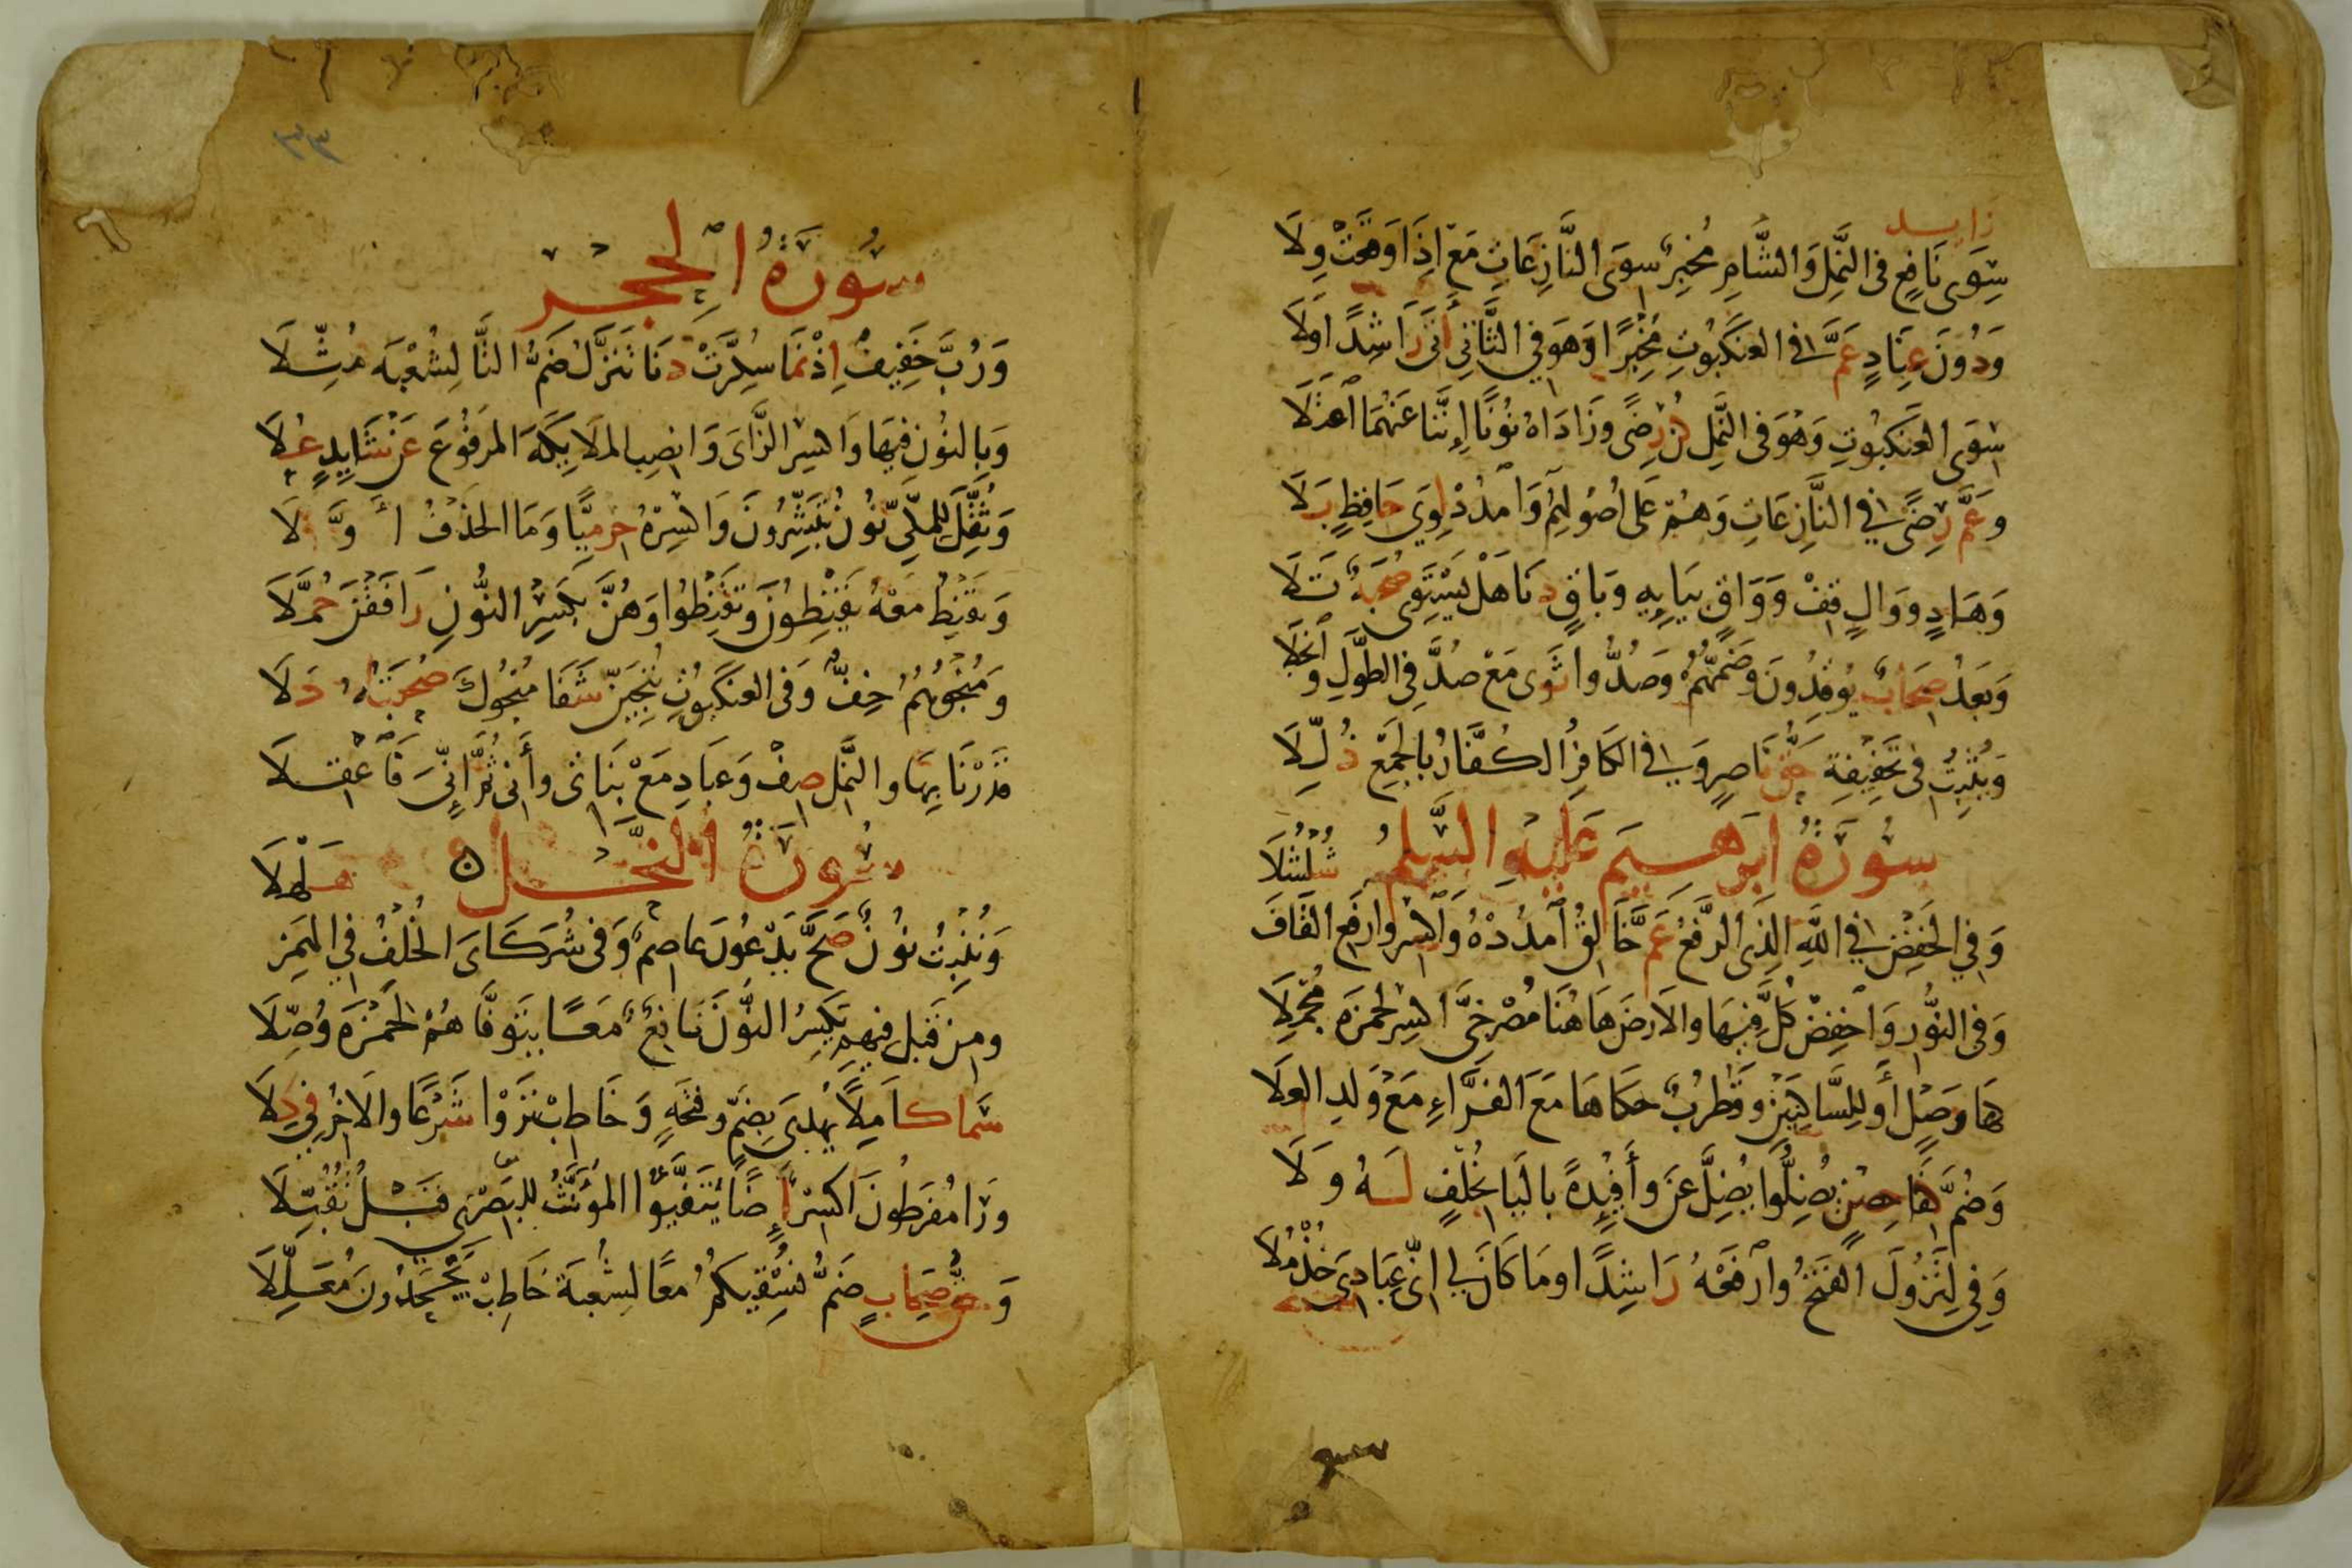 زايد
سِوَى نَافِعٍ فى النَّمِل وَالشَّامِ مُخْبِرٌ سِوَى النَّازِعَاتِ مَعْ اِذَا وَقَعَتْ وِلَا
وَدُونَ عِنَادٍ عَمَّ فى العنكبُوتِ مُخْبِرًا وَهْوَ فِي الثَّانِي أَتَى رَاشِدًا وَلَا
سِوَى العَنكَبُوتِ وَهْوَ فى النَّمِل كُن رِضًى وَزَادَاهُ نُوْنًا إِنَّنَا عَنْهُمَا ٱعْتَلَا
وَعَمَّ رِضًى فِي النَّازِعَاتِ وَهُمْ عَلَى اُصُولِهِمُ وَٱمْدُدْ لِوَى حَافِظٍ بَلَا
وَهَادٍ وَوَالٍ قِفْ وَوَاقٍ بِيَايِهِ وَبَاقٍ دَنَا هَلْ يَسْتَوِى صُحْبَةٌ تَلَا
وَبَعْدُ صِحَابٌ يُوقِدُونَ وَضَمُّهُمْ وَصُدُّوا ثَوَى مَعْ صُدَّ فِي الطَّوْلِ وَٱنْجَلَا
وَيُثْبِتُ فى تَخْفِيْفِهِ حَقُّ نَاصِرٍ وَفِي الكَافِرُ الكُفَّارُ بِالجَمْعِ ذُلِّلَا
سُورَةُ ابرهيم عَلَيْهِ السَّلمُ شُلْشُلَا
وَفِي الخَفْضِ فِي اللهِ الَّذِى الرَّفْعُ عَمَّ خَالِقُ ٱمْدُدْهُ وَٱكْسِر وارفَعِ القَافَ
وَفى النُّورِ وَٱخْفِضْ كُلَّ فِيْهَا والاَرضَ هَاهُنَا مُصْرِخِىَّ اكْسِر لِحَمزَةَ مُجْمِلَا
كَهَا وَصْلٍ أَو لِلسَّاكِنَيْنِ وَقُطْرُبٌ حَكَاهَا مَعَ الفَرَّاءِ مَعْ وَلَدِ العَلَا
وَضُمَّ كِفَا حِصْنٍ يُضِلُّوا يُضِلَّ عَن وَأَفْئِيْدَةً بِاليَا بِخُلْفٍ لَهُ وَلَا
وَفِي لِتَزُولَ الفَتْحُ وارْفَعْهُ رَاشِدًا وَمَا كَانَ لِي اِنِّى عِبَادِىَ خُذْ مُلَا
٣٣
سُورَةُ الحِجْر
وَرُبَّ خَفِيفٌ اِذْ نَمَا سُكِّرَتْ دَنَا تَنَزَّلُ ضَمُّ التَّا لِشُعْبَةَ مُثِّلَا
وَبِالنُونِ فِيهَا وَاكْسِرِ الزَّاىَ وَانصِبِ المَلَايِكَةَ المَرفُوعَ عَن شَايِدٍ عُلَا
وَثُقِّلَ لِلمَكِّىِّ نُونُ تُبَشِّرُونَ وَاكْسِرْهُ حِرْمِيًّا وَمَا الحَذْفُ أَوَّلَا
وَيَقْنِطُ مَعْهُ يَقْنِطُونَ وَتَقْنِطُوا وَهُنَّ بِكَسْرِ النُّونِ رَافَقْنَ حُمَّلَا
وَمُنْجُوهُمُ خِفٌّ وَفى العنكَبُوتِ نُنْجِيَنَّ شَفَا مُنْجُوكَ صُحْبَتُهُ دَلَا
قَدَرْنَا بِهَا والنَّمِل صِفْ وَعِبَادِ مَعْ بَنَاتِى وأَنِّى ثُمَّ اِنِّىَ فَاعْقِلَا
سُورَةُ النَّحل هَلْهَلَا
وَنُنْبِتُ نُونٌ صَحَّ يَدْعُونَ عاصِمٌ وَفى شُرَكَاىَ الخُلْفُ فِي الهَمْزِ
ومِن قَبلِ فيهِمْ يَكْسِرُ النُّونَ نَافِعٌ مَعًا يَتَوَفَّاهُمْ لِحَمْزَةَ وُصِّلَا
سَمَا كَامِلًا يُهْدَى بِضَمٍّ وفتحَةٍ وَخَاطِبْ تَرَوْا شَرْعًا والآخِرُ فِي كِلَا
وَرَا مُفْرَطُونَ اكسِرْ أَضًا يَتَفَيَّوُا المُؤَنَّثُ لِلْبَصْرِىِّ قَبْلُ تُقُبِّلَا
وَحَقُّ صِحَابٍ ضَمُّ نُسْقِيكُمُ مَعًا لِشُعبَةَ خَاطِبْ يَجْحَدُونَ مُعَلَّلَا